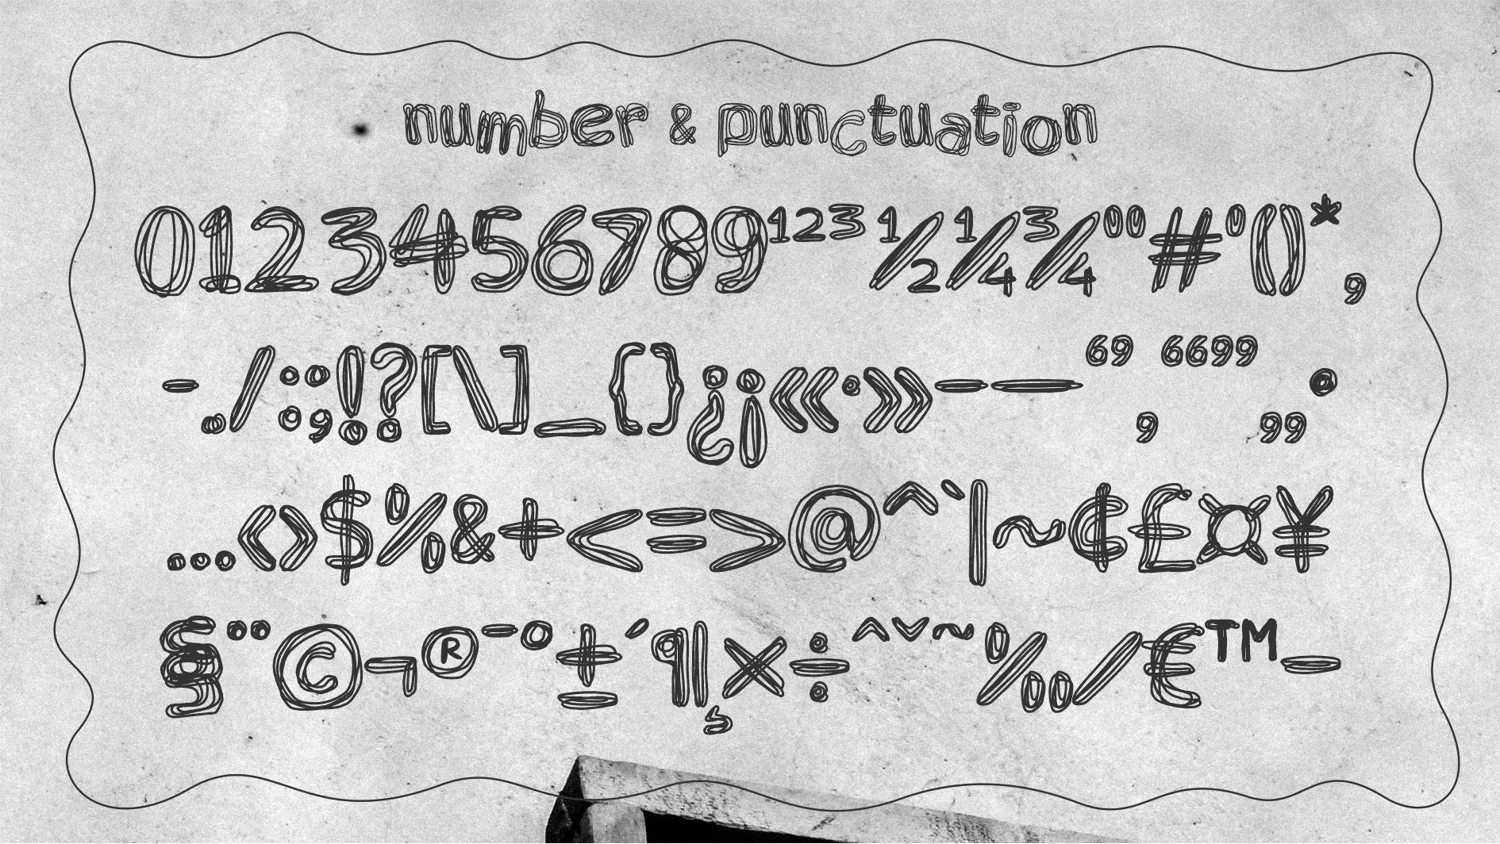 number & punctuation
0123456789¹²³½¼¾"#'()*,
-./:;!?[\]_{}¿¡«·»–—‘’‚“”„•
…‹›$%&+<=>@^`|~¢£¤¥
§¨©¬®¯°±´¶¸×÷ˆˇ˜‰⁄€™−